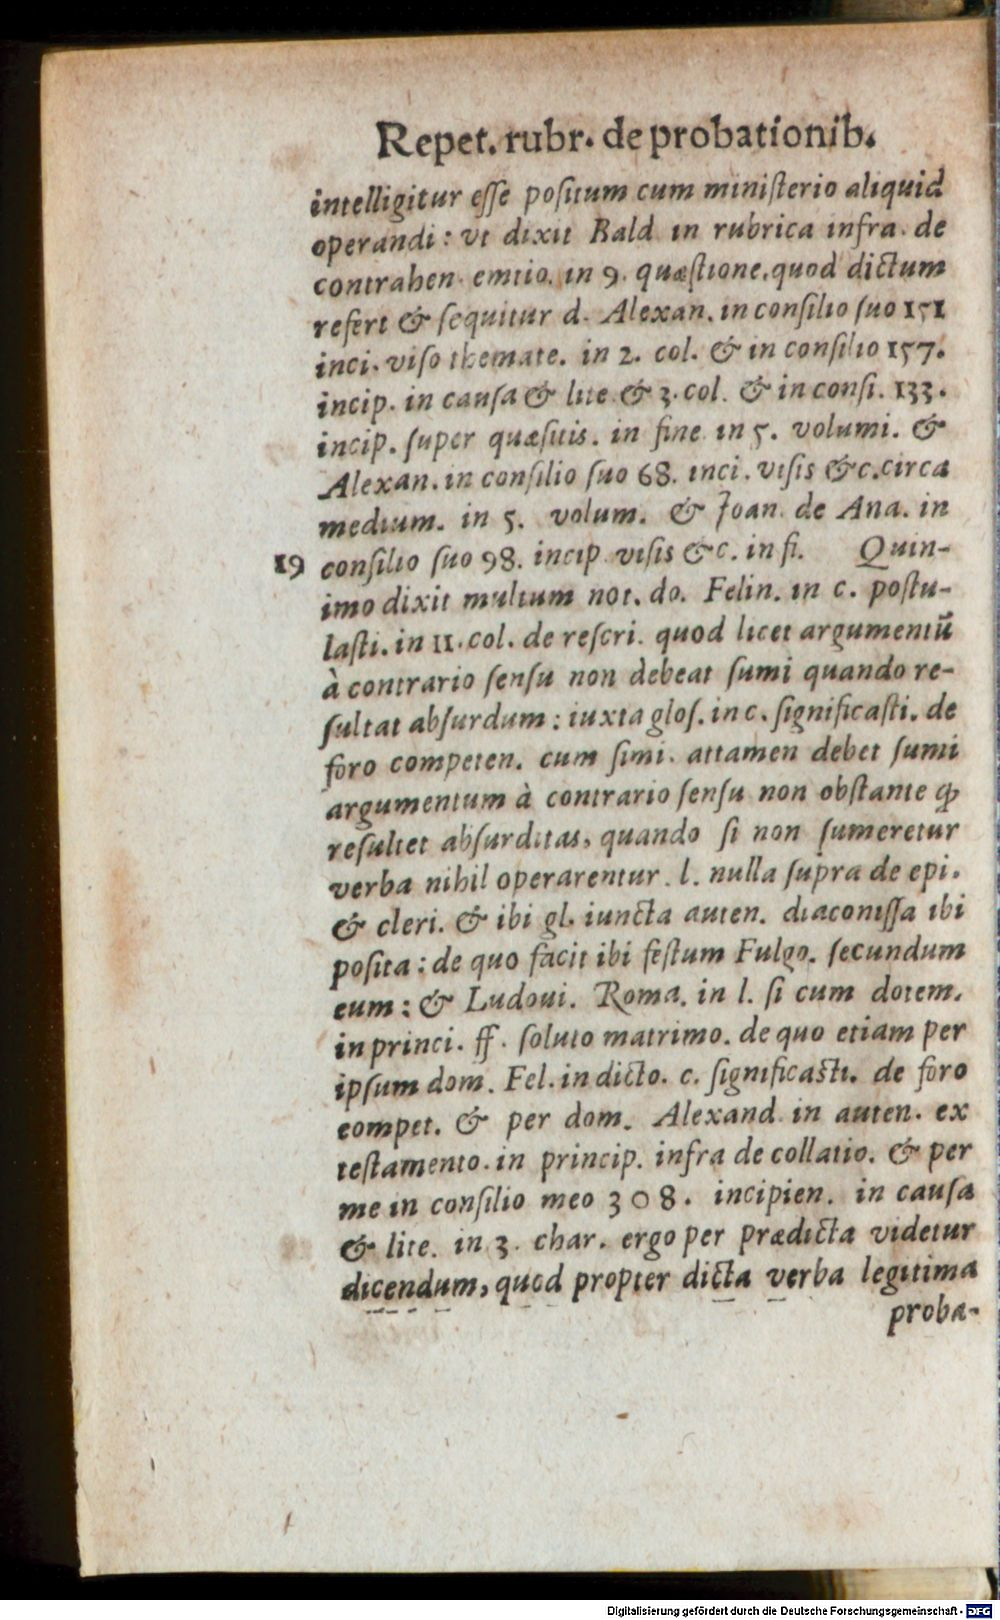 Repet. rubr. de probationib.
intelligitur eſſe poſitum cum miniſterio aliquid
operandi: vt dixit Bald. in rubrica infra. de
contrahen. emtio. in 9. quæſtione, quod dictum
refert & ſequitur d. Alexan. in conſilio ſuo 151
inci. viſo themate. in 2. col. & in conſilio 157.
incip. in cauſa & lite & 3. col. & in conſi. 133.
incip. ſuper quæſitis. in fine in 5. volumi. &
Alexan. in conſilio ſuo 68. inci. viſis &c. circa
medium. in 5. volum. & Joan. de Ana. in
19 conſilio ſuo 98. incip. viſis &c. in fi. Quin-
imo dixit multum not. do. Felin. in c. poſtu-
laſti. in 11. col. de reſcri. quod licet argumentū
à contrario ſenſu non debeat ſumi quando re-
ſultat abſurdum: iuxta gloſ. in c. ſignificaſti. de
foro competen. cum ſimi. attamen debet ſumi
argumentum à contrario ſenſu non obſtante ꝙ
reſultet abſurditas, quando ſi non ſumeretur
verba nihil operarentur. l. nulla ſupra de epi.
& cleri. & ibi gl. iuncta auten. diaconiſſa ibi
poſita: de quo facit ibi feſtum Fulgo. ſecundum
eum: & Ludoui. Roma. in l. ſi cum dotem.
in princi. ff. ſoluto matrimo. de quo etiam per
ipſum dom. Fel. in dicto. c. ſignificaſti. de foro
compet. & per dom. Alexand. in auten. ex
teſtamento. in princip. infra de collatio. & per
me in conſilio meo 308. incipien. in cauſa
& lite. in 3. char. ergo per prædicta videtur
dicendum, quod propter dicta verba legitima
proba-
Digitalisierung gefördert durch die Deutsche Forschungsgemeinschaft - DFG